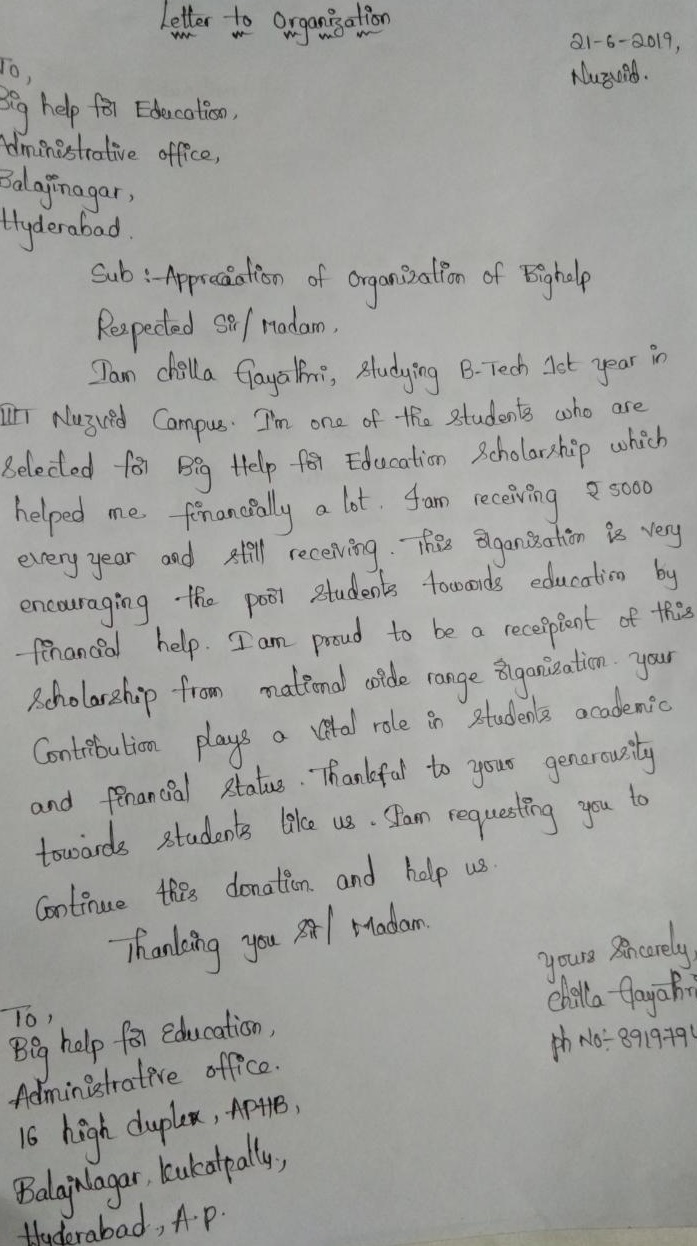 Letter to Organization
21-6-2019,
Nuzvid.
To,
Big help for Education,
Administrative office,
Balajinagar,
Hyderabad.
Sub :- Appreciation of Organization of Bighelp
Respected Sir/Madam,
I am chilla Gayathri, studying B-Tech 1st year in
IIIT Nuzvid Campus. I'm one of the students who are
selected for Big Help for Education Scholarship which
helped me financially a lot. I am receiving ₹ 5000
every year and still receiving. This organization is very
encouraging the poor students towards education by
financial help. I am proud to be a receipient of this
scholarship from national wide range organization. your
Contribution plays a vital role in students academic
and financial status. Thankful to your generousity
towards students like us. I am requesting you to
Continue this donation and help us.
Thanking you Sir/Madam.
yours Sincerely,
chilla Gayathri
ph No:- 8919791
To,
Big help for Education,
Administrative office.
16 high duplex, APHB,
BalajNagar, kukatpally,,
Hyderabad, A.p.